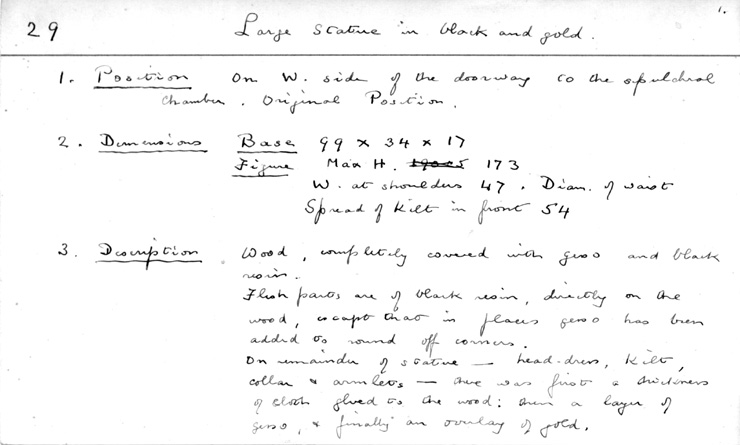 1.
29 Large statue in black and gold.
1. Position On W. side of the doorway to the sepulchral
chamber. Original Position.
2. Dimensions Base 99 x 34 x 17
Figure Max H. 173
W. at shoulders 47. Diam. of waist
Spread of Kilt in front 54
3. Description Wood, completely covered with gesso and black
resin.
Flesh parts are of black resin, directly on the
wood, except that in places gesso has been
added to round off corners.
On remainder of statue — head-dress, Kilt,
collar & armlets — there was first a thickness
of cloth glued to the wood: then a layer of
gesso, & finally an overlay of gold.